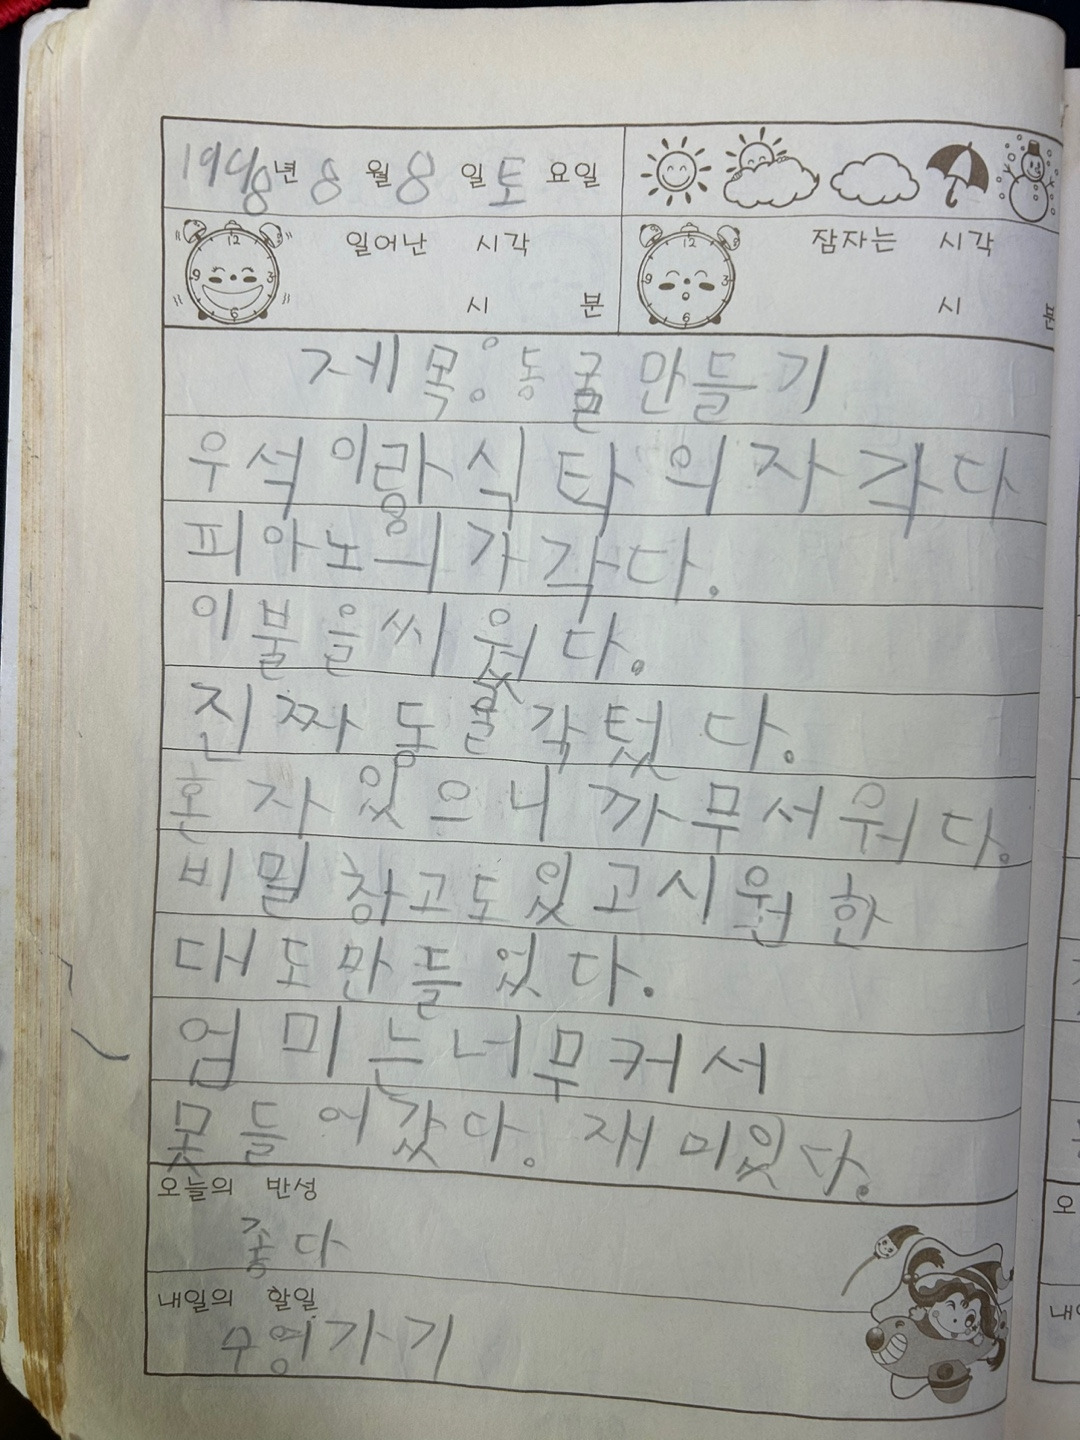 1998년 8월 8일 토요일
일어난 시각
시 분
잠자는 시각
시 분
제목: 동굴만들기
우석이랑식탁의자각다
피아노의가각다.
이불을씨웠다.
진짜동물각텄다.
혼자있으니까무서워다.
비밀창고도있고시원한
대도만들었다.
엄미는너무커서
못들어갔다. 재미있다.
오늘의 반성
좋다
내일의 할일
수영가기